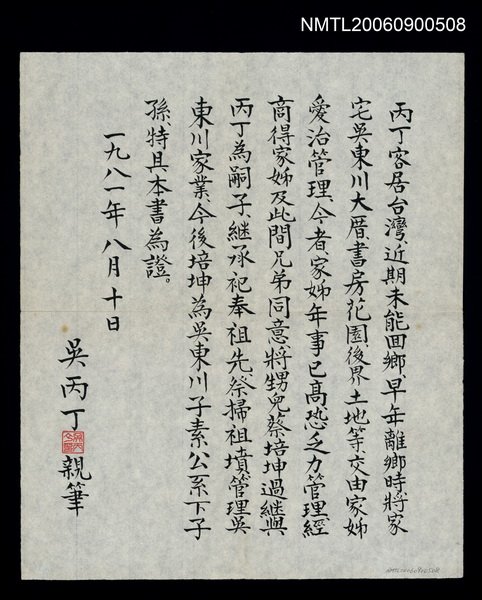 NMTL20060900508
丙丁客居台灣、近期未能回鄉、早年離鄉時將家
宅吳東川大厝書房花園、後界土地等、交由家姊
愛治管理、今者家姊年事已高恐乏力管理、經
商得家姊及此間兄弟同意、將甥兒蔡培坤過繼與
丙丁為嗣子、繼承祀奉祖先、祭掃祖墳管理吳
東川家業、今後培坤為吳東川子素、公系下子
孫、特具本書為證。
一九八一年八月十日
吳丙丁親筆
NMTL20060900508